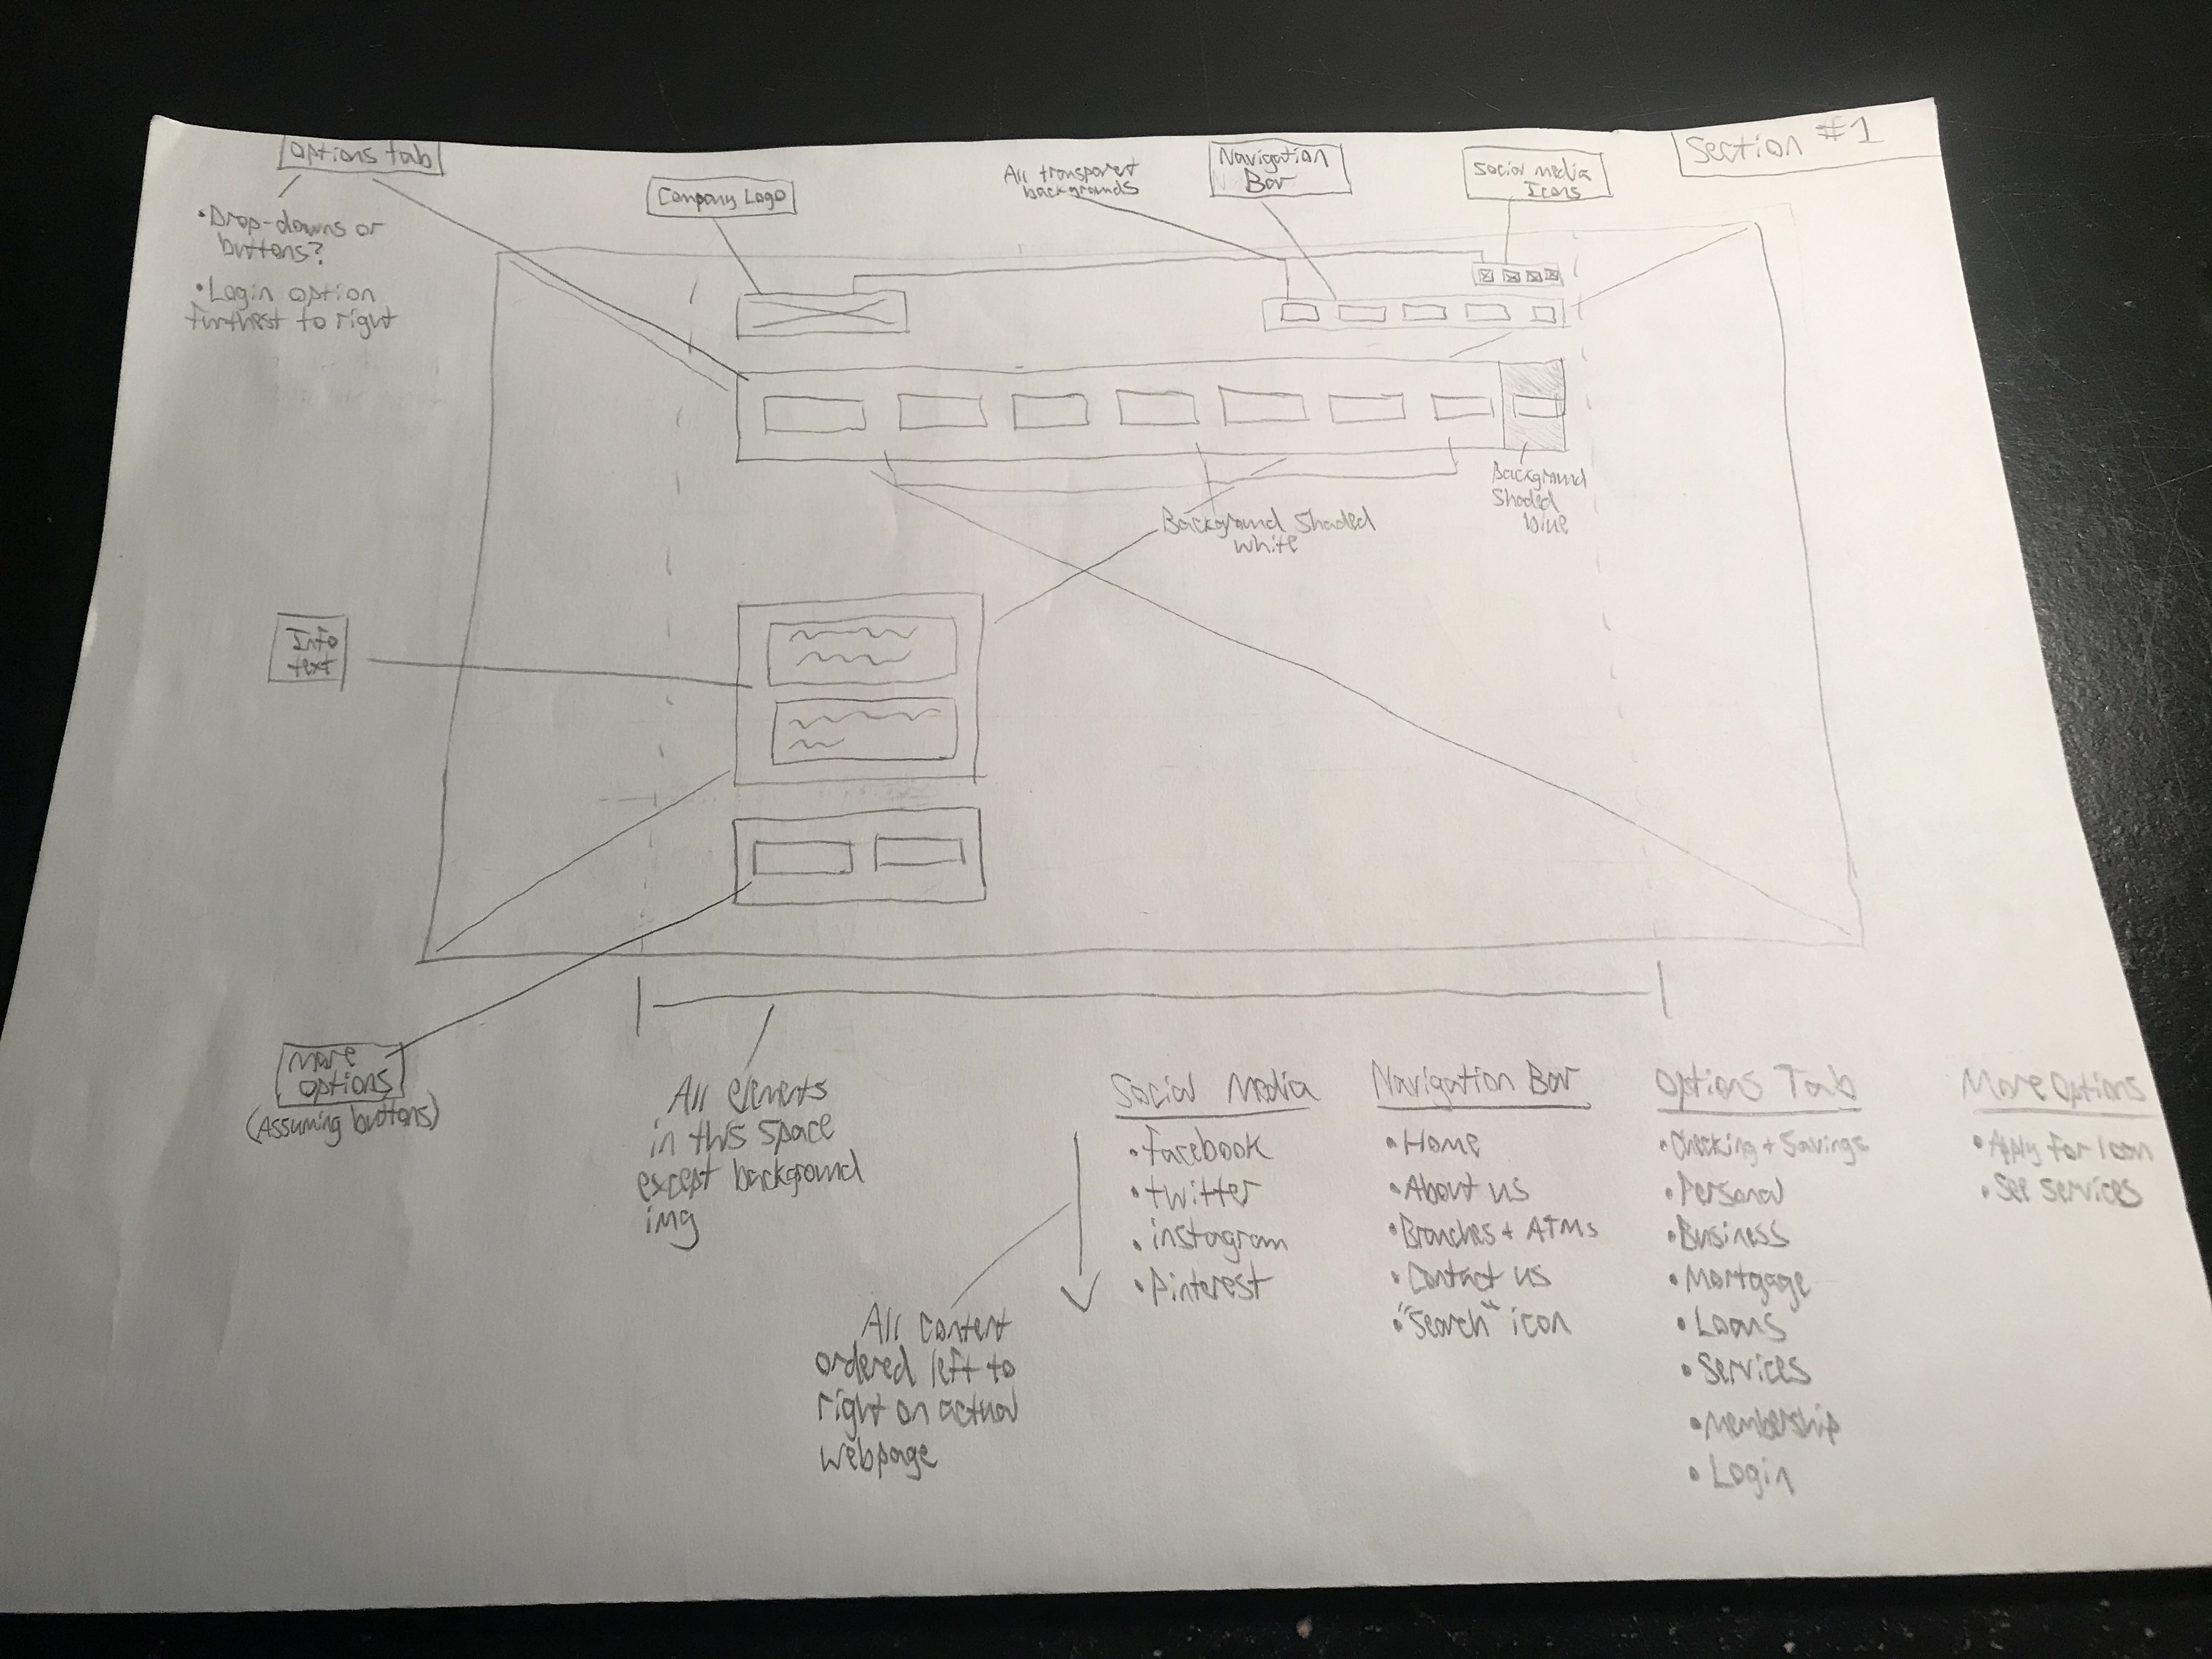 Options tab
• Drop-downs or
buttons?
• Login option
furthest to right
Company Logo
All transparent
backgrounds
Navigation
Bar
Social media
Icons
Section #1
Background Shaded
white
Background
Shaded
blue
Info
text
More
options
(Assuming buttons)
All elements
in this space
except background
img
All content
ordered left to
right on actual
webpage
Social Media
• Facebook
• twitter
• instagram
• Pinterest
Navigation Bar
• Home
• About us
• Branches + ATMs
• Contact us
• "Search" icon
Options Tab
• Checking + Savings
• Personal
• Business
• Mortgage
• Loans
• Services
• Membership
• Login
More Options
• Apply for loan
• See services